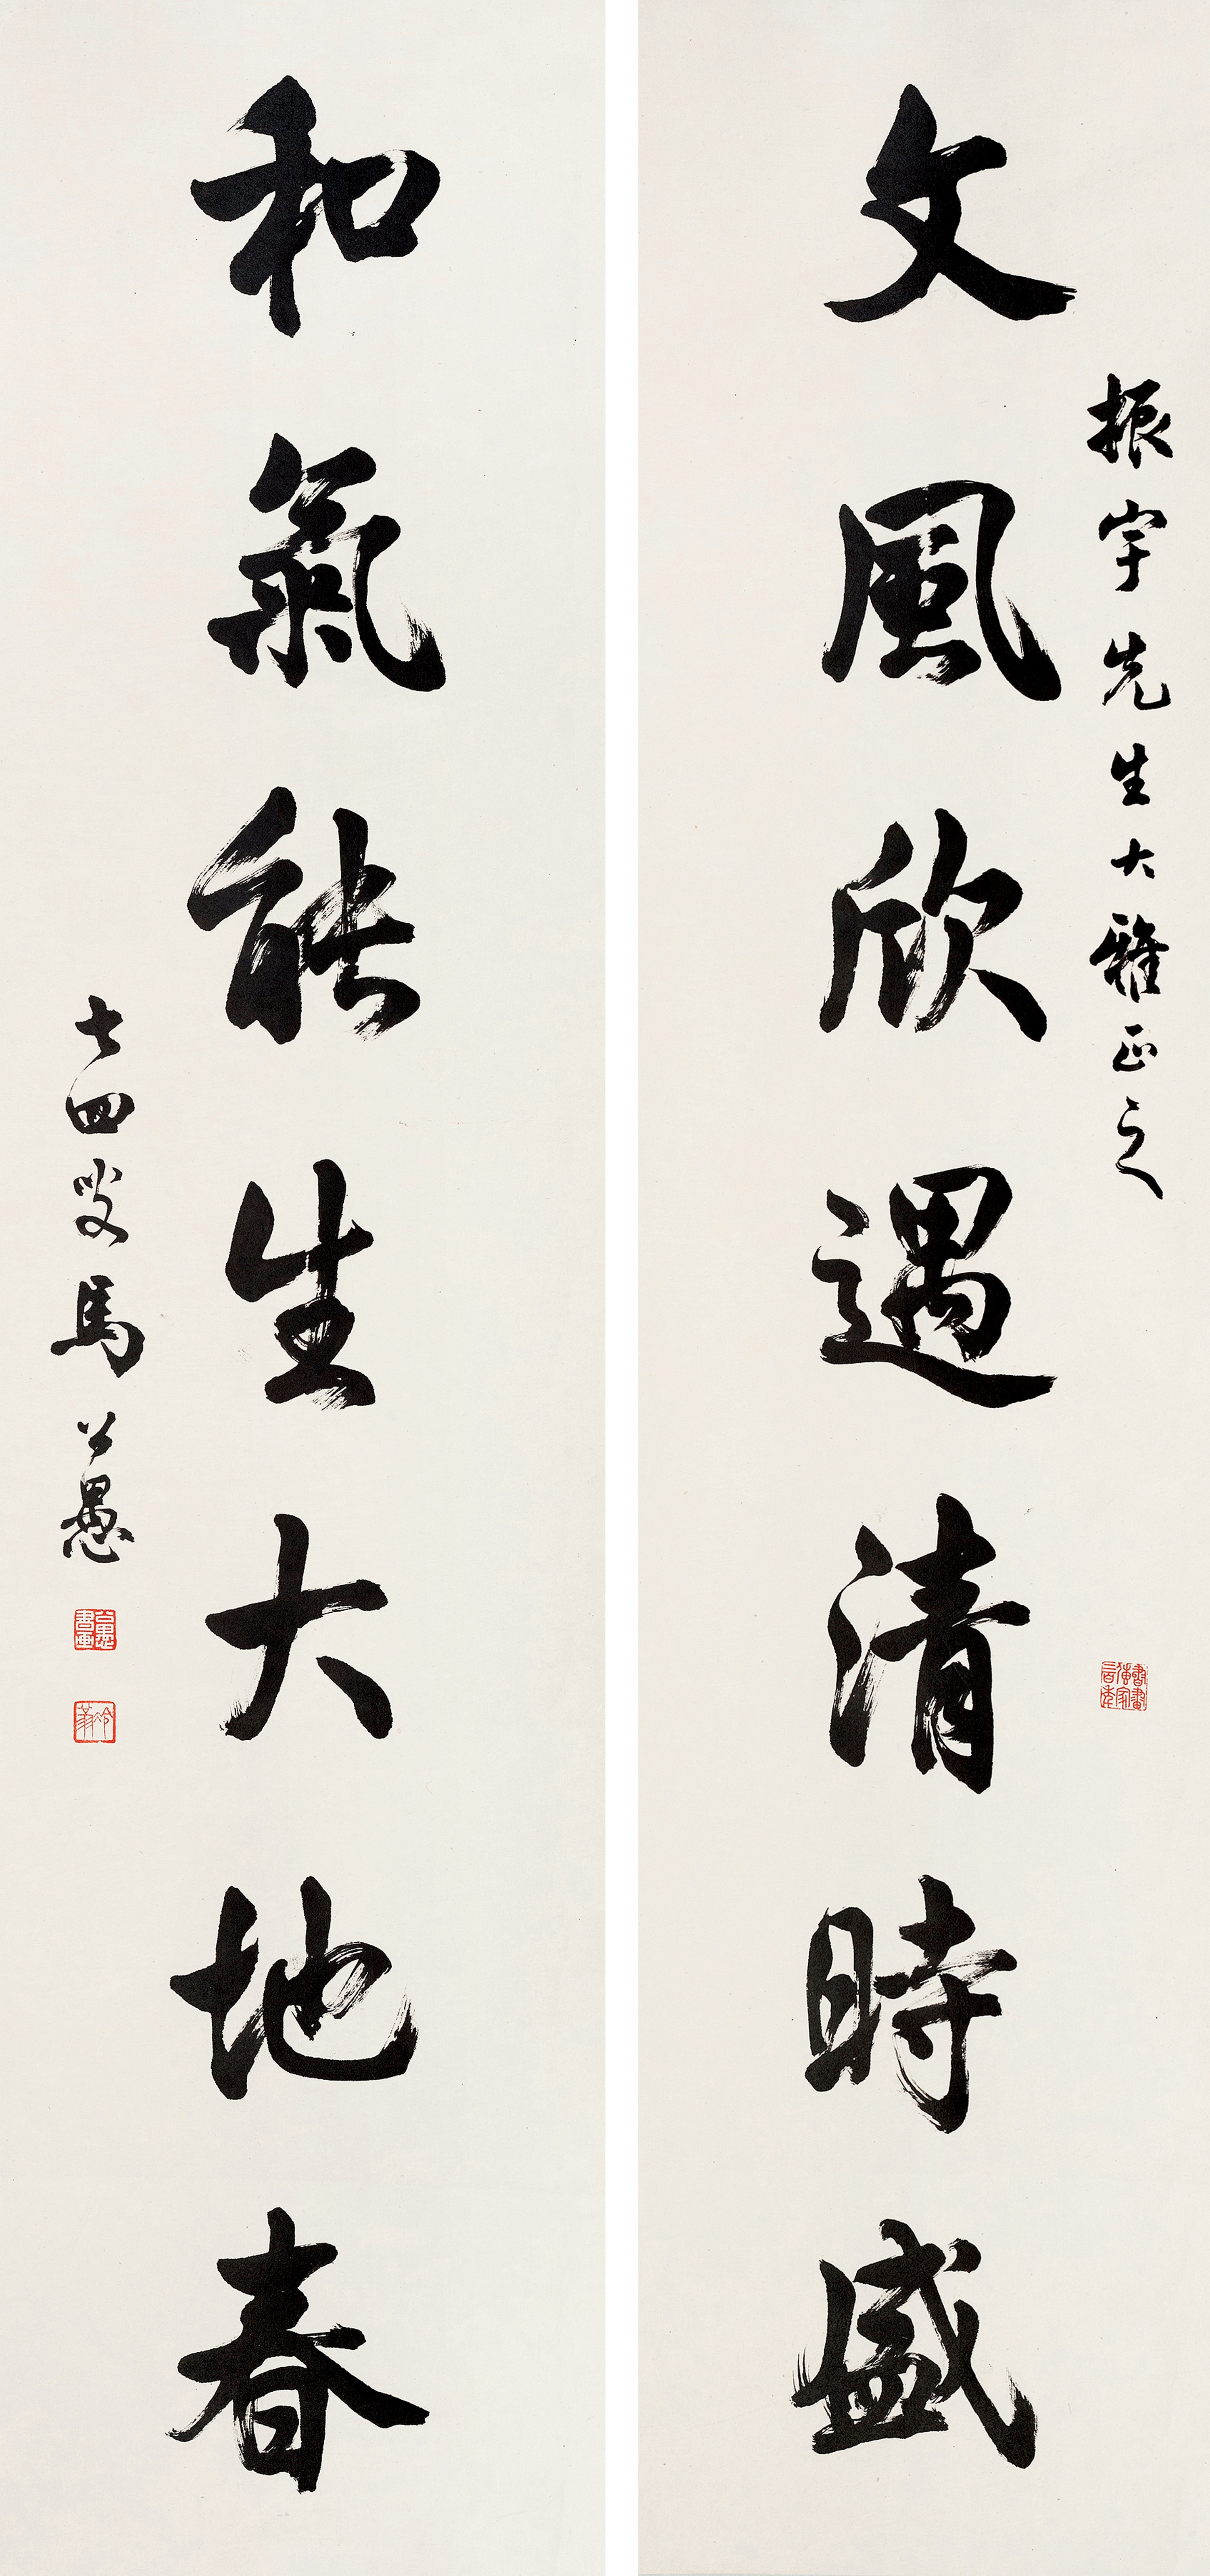 振宇先生大雅正之
文風欣遇清時盛
和氣能生大地春
七四叟馬公愚
公愚書畫
冷翁